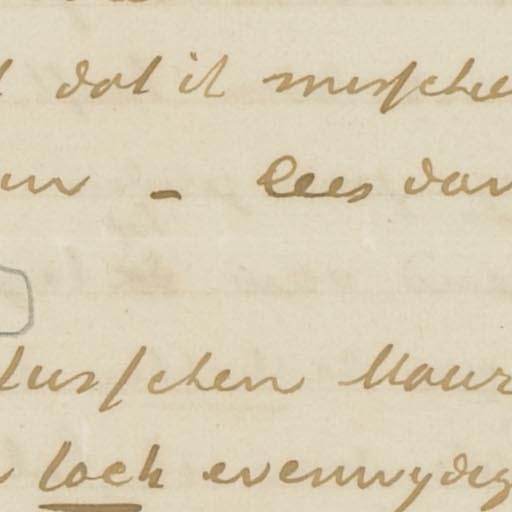 dat ik misschie
en - lees dan
tusschen Maur
toch evenwydig